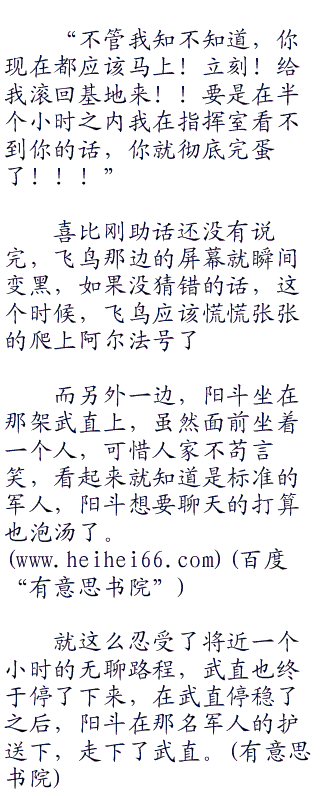 “不管我知不知道，你
现在都应该马上！立刻！给
我滚回基地来！！要是在半
个小时之内我在指挥室看不
到你的话，你就彻底完蛋
了！！！”
喜比刚助话还没有说
完，飞鸟那边的屏幕就瞬间
变黑，如果没猜错的话，这
个时候，飞鸟应该慌慌张张
的爬上阿尔法号了
而另外一边，阳斗坐在
那架武直上，虽然面前坐着
一个人，可惜人家不苟言
笑，看起来就知道是标准的
军人，阳斗想要聊天的打算
也泡汤了。
(www.heihei66.com)(百度
“有意思书院”)
就这么忍受了将近一个
小时的无聊路程，武直也终
于停了下来，在武直停稳了
之后，阳斗在那名军人的护
送下，走下了武直。(有意思
书院)